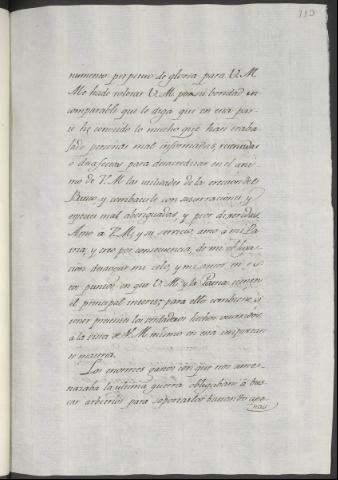 113
numento perpetuo de gloria para V.M.
Me ha de tolerar V.M. por su bondad in
comparable que le diga que en esta par
te he conocido lo mucho que han traba
jado personas mal informadas, resentidas
ó desafectas para desacreditar en el áni
mo de V.M. las utilidades de la creacion del
Banco y combatirle con susurraciones y
especies mal aberiguadas y peor digeridas.
Amo á V.M. y su servicio, amo á mi Pa
tria, y creo por consecuencia, de mi obliga
cion descargar mi zelo y mi amor en es
tos puntos en que V.M. y la Patria tienen
el principal interes; para ello combiene ex
poner presentes los verdaderos hechos
á la vista de V.M. mismo en esta importan
te materia.
Los enormes gastos con que nos ame
nazaba la última guerra obligaban á bus
car arbitrios para soportarlos buscando
nas